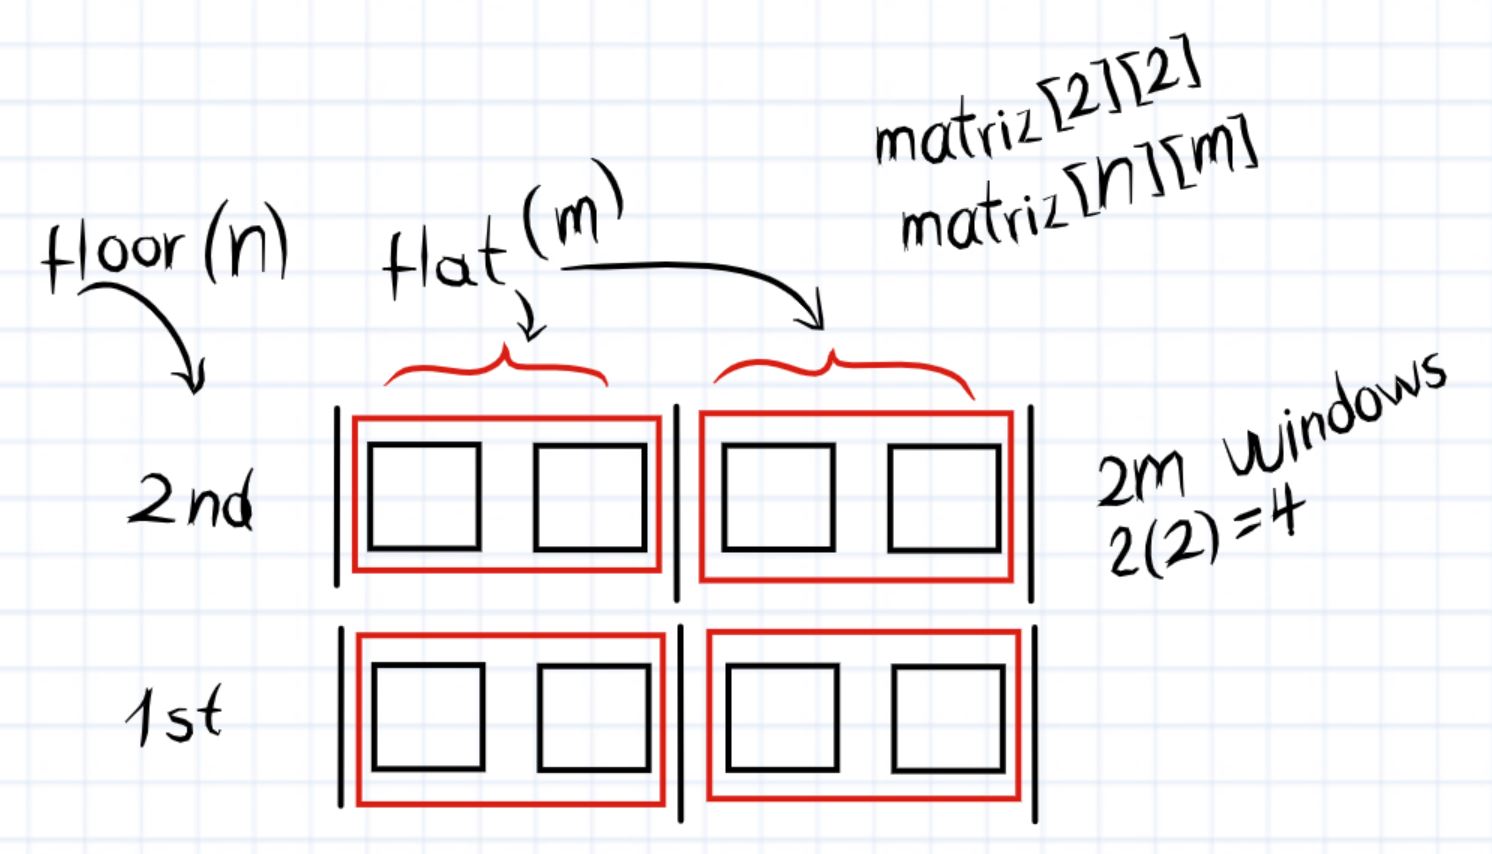 matriz[2][2]
matriz[n][m]
floor(n)
flat(m)
2nd
2m windows
2(2)=4
1st